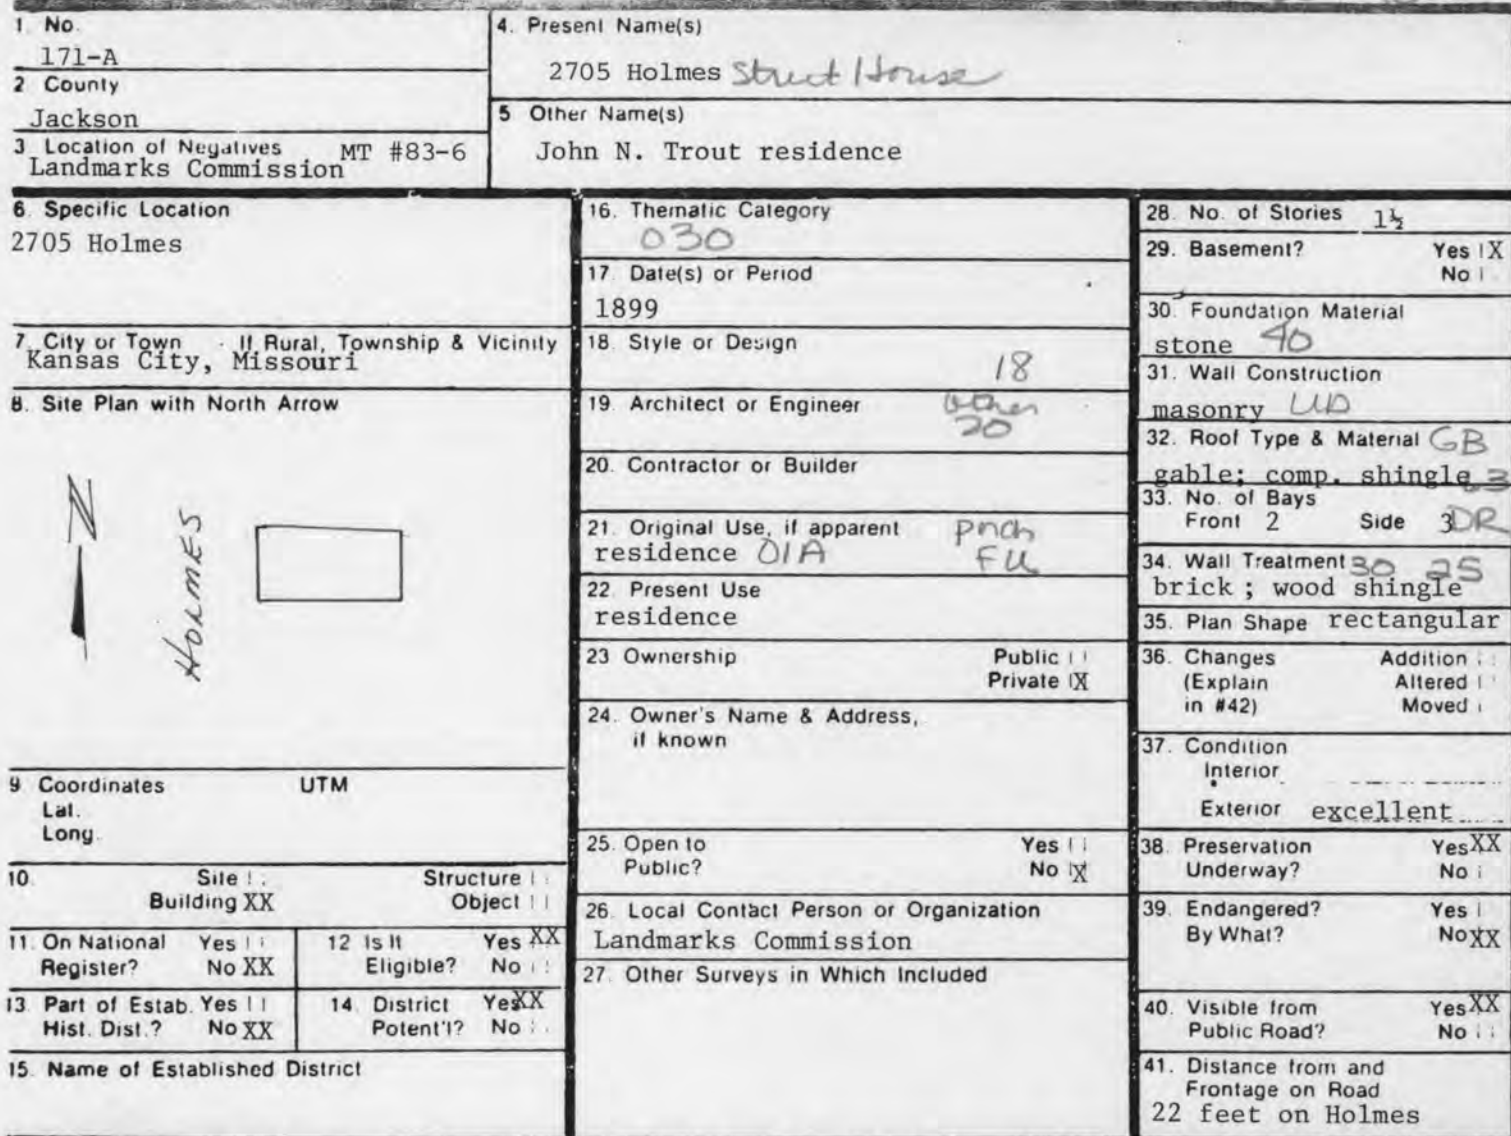 1. No.
171-A
2 County
Jackson
3 Location of Negatives MT #83-6
Landmarks Commission
4. Present Name(s)
2705 Holmes Street House
5 Other Name(s)
John N. Trout residence
6. Specific Location
2705 Holmes
7. City or Town If Rural, Township & Vicinity
Kansas City, Missouri
8. Site Plan with North Arrow
N
HOLMES
9 Coordinates UTM
Lat.
Long.
10. Site Structure
Building XX Object
11. On National Yes
Register? No XX
12 Is It Yes XX
Eligible? No
13. Part of Estab. Yes
Hist. Dist.? No XX
14. District Yes XX
Potent'l? No
15. Name of Established District
16. Thematic Category
030
17. Date(s) or Period
1899
18. Style or Design
18
19. Architect or Engineer other
20
20. Contractor or Builder
21. Original Use, if apparent porch
residence 01A FU
22. Present Use
residence
23 Ownership Public
Private X
24. Owner's Name & Address,
if known
25. Open to Yes
Public? No X
26. Local Contact Person or Organization
Landmarks Commission
27. Other Surveys in Which Included
28. No. of Stories 1½
29. Basement? Yes X
No
30. Foundation Material
stone 40
31. Wall Construction
masonry UD
32. Roof Type & Material GB
gable; comp. shingle 63
33. No. of Bays
Front 2 Side 3 DR
34. Wall Treatment 30 25
brick ; wood shingle
35. Plan Shape rectangular
36. Changes Addition
(Explain Altered
in #42) Moved
37. Condition
Interior
Exterior excellent
38. Preservation Yes XX
Underway? No
39. Endangered? Yes
By What? No XX
40. Visible from Yes XX
Public Road? No
41. Distance from and
Frontage on Road
22 feet on Holmes